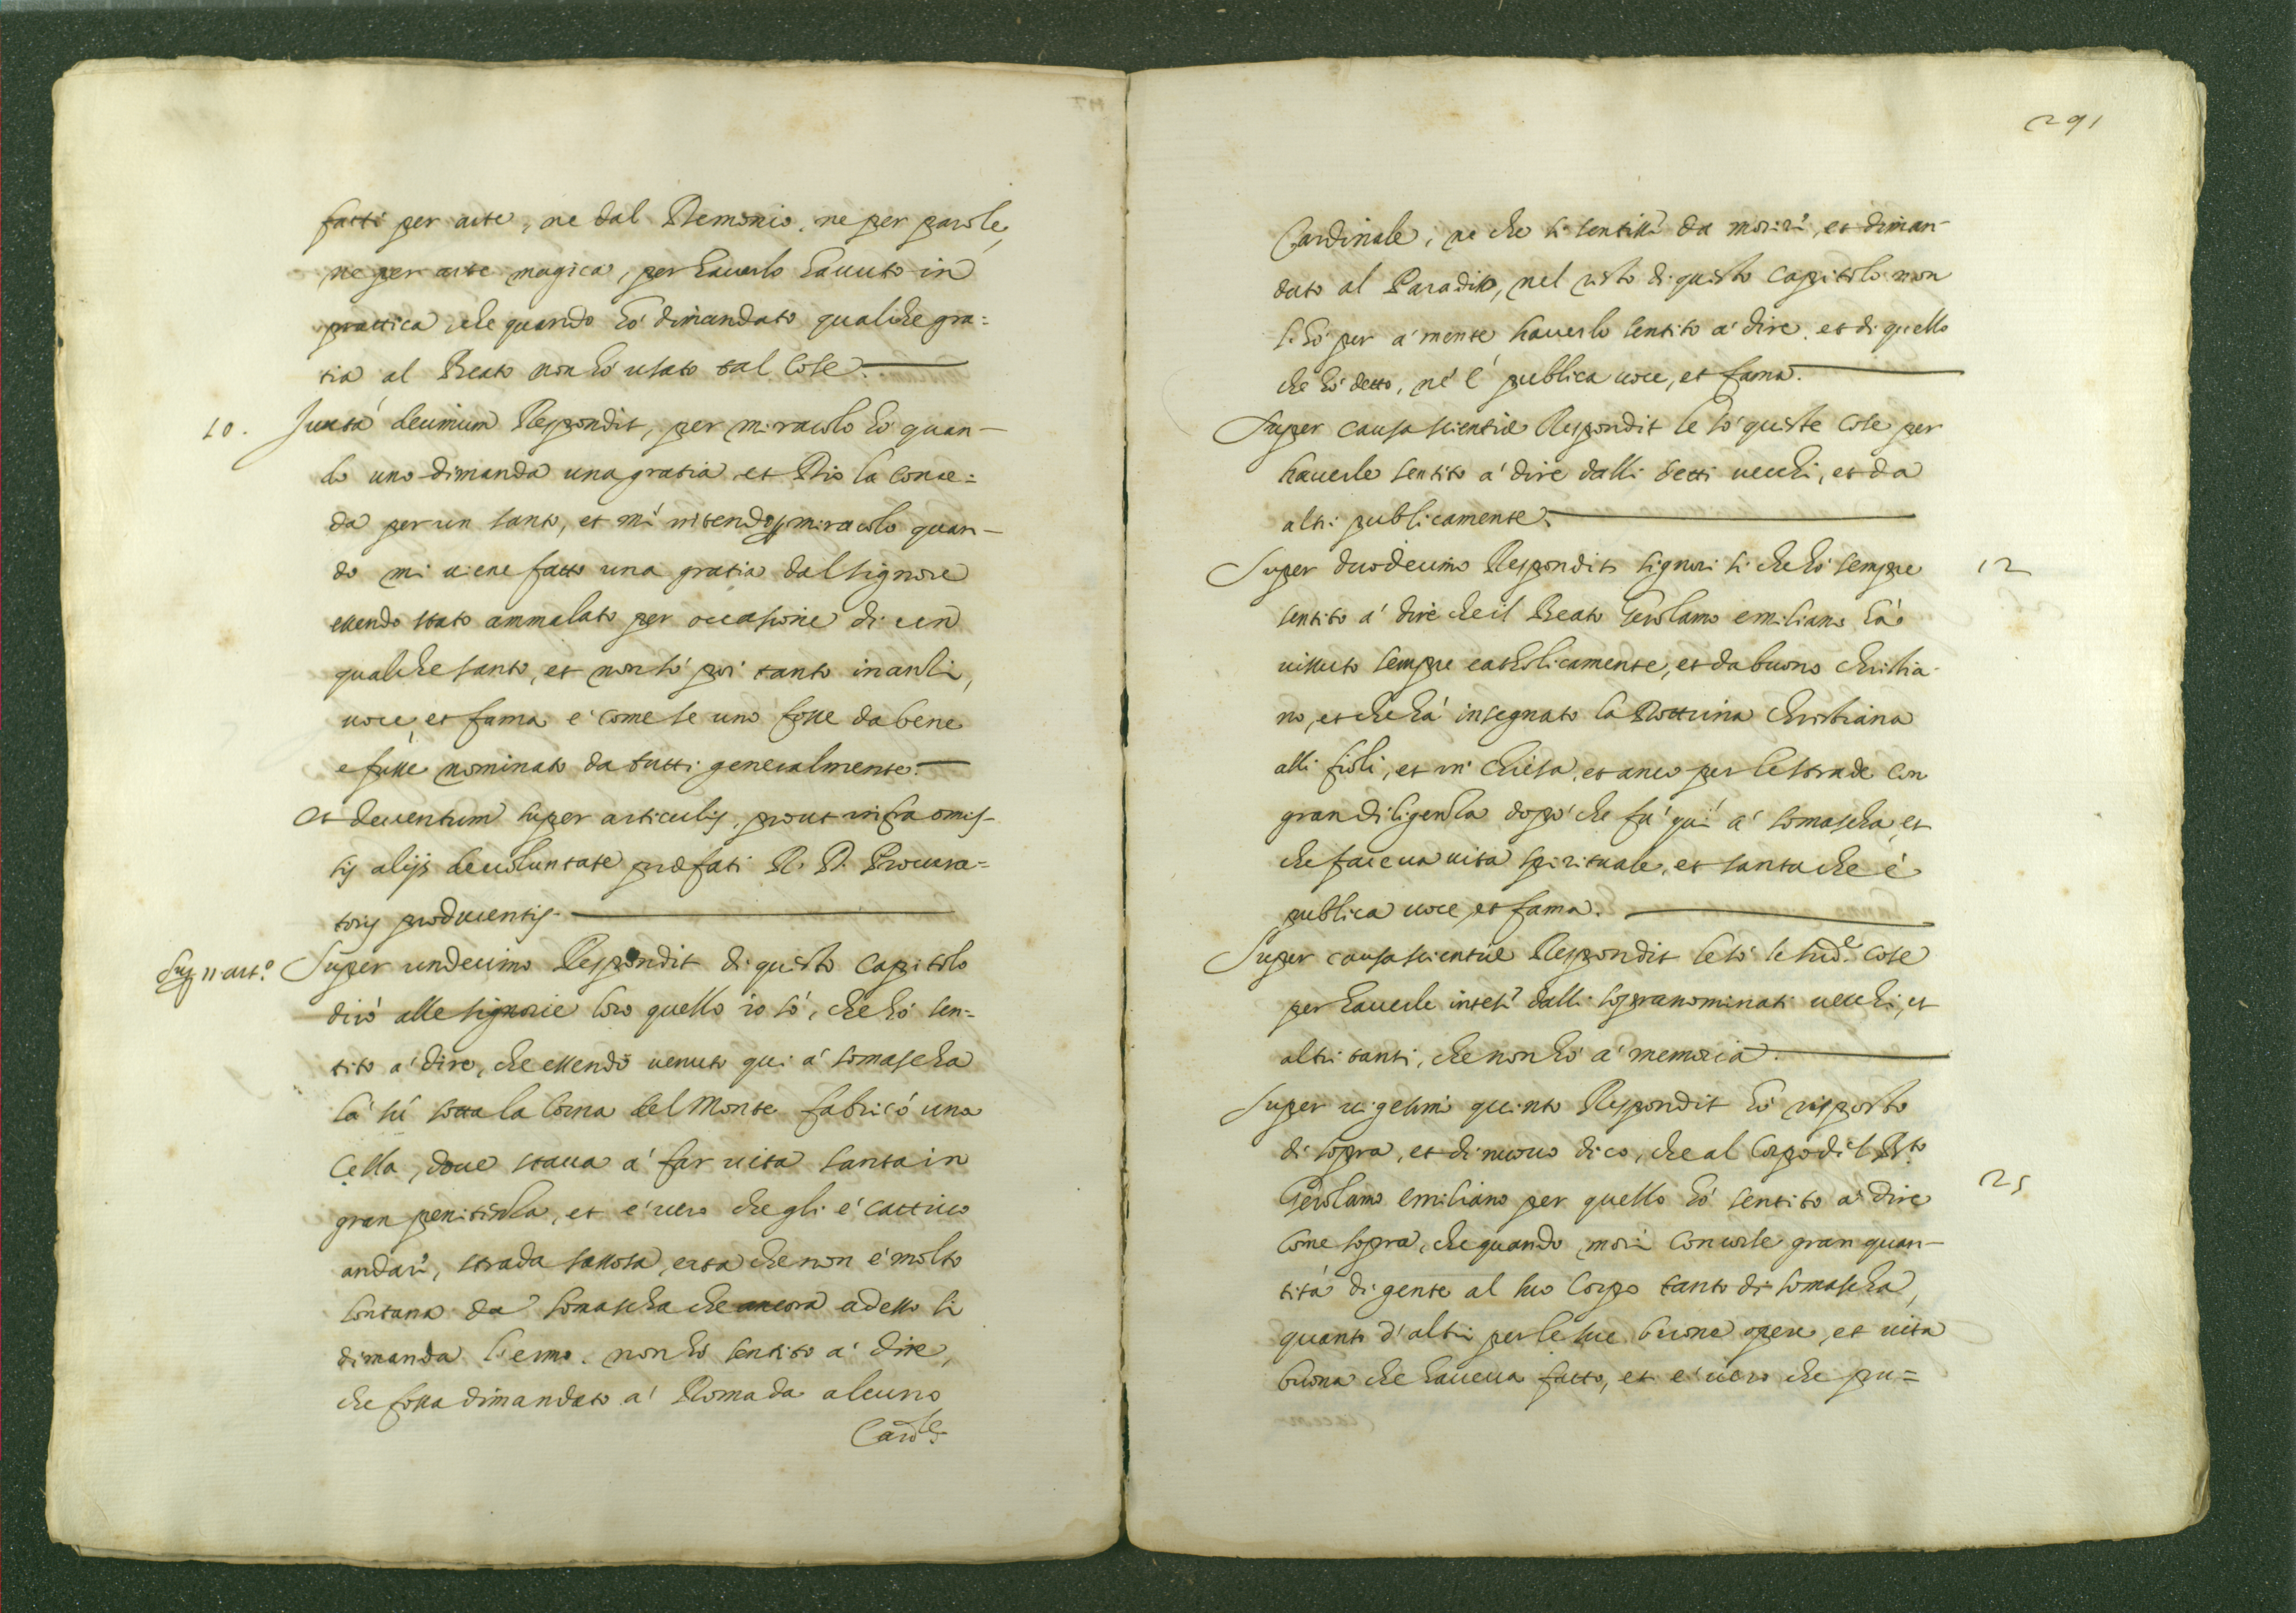 fatti per arte, ne dal Demonio, ne per parole,
ne per arte magica, per haverlo havuto in
prattica che quando hò dimandato qualche gra=
tia al Beato non hò usato tal cose.
10. Juxta decimum Respondit, per miracolo hò quan-
do uno dimanda una gratia et Dio la conce=
da per un santo, et mi intendo miracolo quan-
do mi viene fatto una gratia dal signore
essendo stato ammalato per occasione di un
qualche santo, et non sò poi tanto inanti,
voce, et fama è come se uno fosse da bene
e fusse nominato da tutti generalmente.
Et deventum super articulis, prout infra omis-
sis alijs de voluntate præfati R. D. Procura=
toris producentis.
Sup. 11. art.º Super undecimo Respondit di questo capitolo
dirò alle signorie loro quello io sò, che hò sen=
tito a' dire, che essendo venuto qui a' somascha
là sù sotta la Corna del Monte fabricò una
Cella, dove stava a' far vita santa in
gran penitenza, et è vero che gli è cattivo
andari, strada sassosa, erta che non è molto
lontana da somascha che ancora adesso si
dimanda l'ermo. non hò sentito a' dire,
che fossa dimandato a' Roma da alcuno
Card.le
291
Cardinale, ne che si sentissi da moriri, et diman-
dato al Paradiso, nel resto di questo capitolo non
l'hò per a' mente haverlo sentito a' dire. et di quello
che hò detto, nè è publica voce, et fama.
Super causa scientiæ Respondit le sò queste cose per
haverle sentito a' dire dalli detti vecchi, et da
altri publicamente.
Super duodecimo Respondit signori si che hò sempre 12
sentito a' dire che il Beato Gerolamo emiliano hà
vissuto sempre catholicamente, et da buono christia-
no, et che hà insegnato la Dottrina christiana
alli fioli, et in chiesa, et anco per le strade con
gran diligenza dopò che fù quì a' somascha et
che faceva vita spirituale, et santa che è
publica voce, et fama.
Super causa scientiæ Respondit le sò le sud.e cose
per haverle intesi dalli sopranominati vecchi, et
altri tanti, che non hò a' memoria.
Super vigesimi quinto Respondit hò risposto
di sopra, et di nuovo dico, che al Corpo dil B.to
Gerolamo emiliano per quello hò sentito a' dire 25
come sopra, che quando morì concorse gran quan-
tità di gente al suo Corpo tanto di somascha,
quanto d'altri per le sue buone opere, et vita
buona che haveva fatto, et è vero che pu=